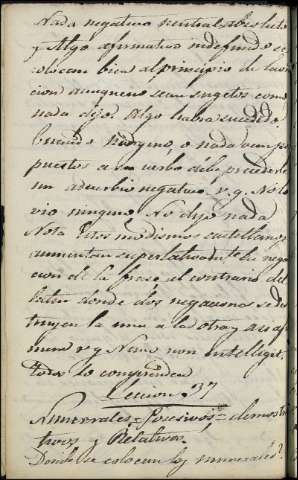 Nada negativo neutral absoluto
y Algo afirmativo indefinido se
colocan bien al principio de la ora
cion aunque no sean sugetos como
nada dijo. Algo habrá sucedido
Cuando Ninguno, o nada van pos
puestos a su verbo debe precederle
un adverbio negativo v.g. No lo
vio ninguno. No dijo nada
Nota Estos modismos castellanos
aumentan superlativamte la nega
cion de la frase al contrario del
latin donde dos negaciones se des
truyen la una a la otra y asi a
v.g Nemo non intelligit
todos lo comprenden
Leccion 37
Numerales Posesivos demos
trativos y Relativos
Donde se colocan los numerales?